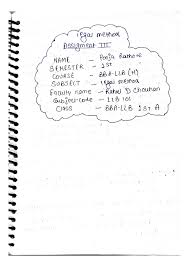 legal method
Assignment III
NAME - Pooja Rathore
SEMESTER - 1st
COURSE - BBA-LLB (H)
SUBJECT - legal method
Faculty name - Rahul D Chouhan
Subject-code - LLB 101
CLASS - BBA-LLB 1st A